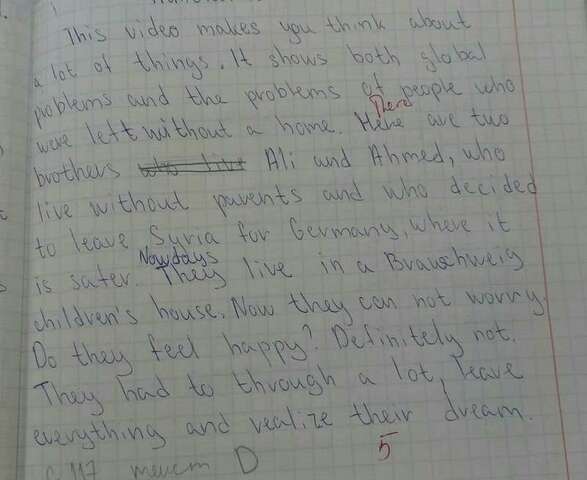 This video makes you think about
a lot of things. It shows both global
problems and the problems of people who
There
were left without a home. Here are two
brothers who live Ali and Ahmed, who
live without parents and who decided
to leave Syria for Germany, where it
Nowdays
is safer. They live in a Brauschweig
children's house. Now they can not worry.
Do they feel happy? Definitely not.
They had to through a lot, leave
everything and realize their dream.
5
с 117 текст D